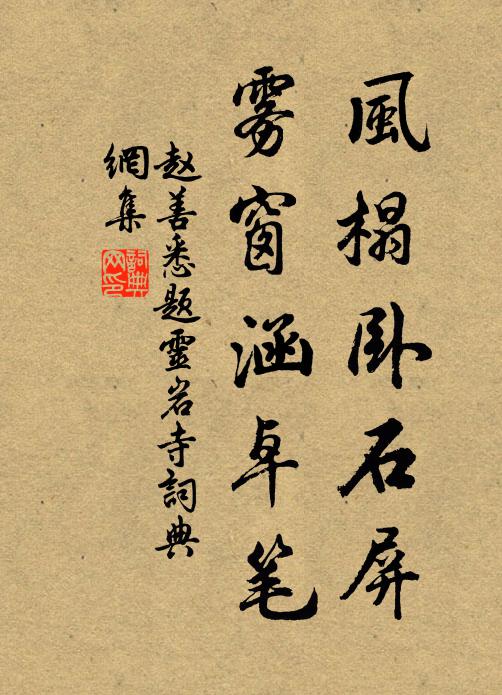 風榻卧石屏
雾窗涵卓笔
赵善悉题靈岩寺詞典
網集
詞典网印